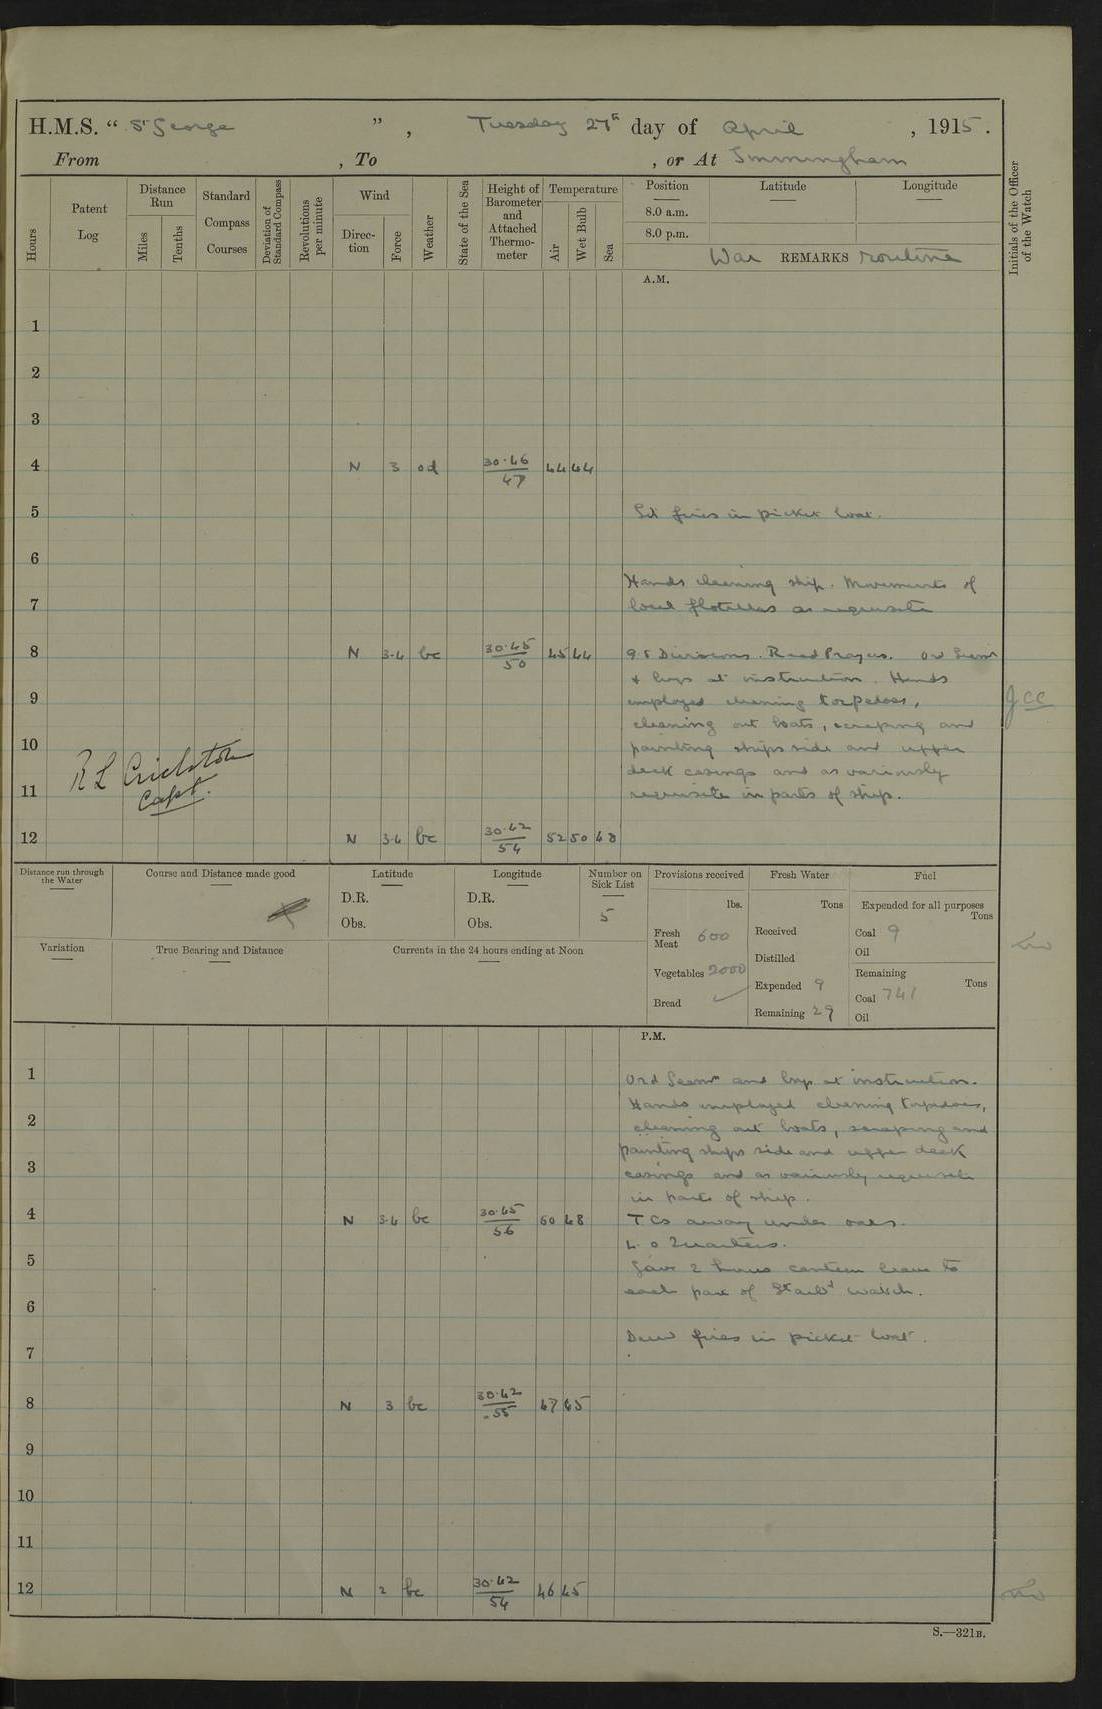 H.M.S. “ St George ” , Tuesday 27th day of April , 1915 .
From , To , or At Immingham
Hours
Patent Log
Distance Run
Miles
Tenths
Standard Compass Courses
Deviation of Standard Compass
Revolutions per minute
Wind
Direction
Force
Weather
State of the Sea
Height of Barometer and Attached Thermometer
Temperature
Air
Wet Bulb
Sea
Position Latitude Longitude
8.0 a.m.
8.0 p.m.
War REMARKS routine
Initials of the Officer of the Watch
A.M.
1
2
3
4 N 3 od 30·46 47 44 44
5 Lit fires in picket boat.
6
Hands cleaning ship. Movements of
7 local flotillas as requisite
8 N 3-4 bc 30·45 50 45 44 9.5 Divisions. Read Prayers. Ord Seamn
& boys at instruction. Hands
9 employed cleaning torpedoes, JCC
cleaning out boats, scraping and
10 painting ships side and upper
R L Crichton deck casings and as variously
11 Capt. requisite in parts of ship.
12 N 3-4 bc 30·42 54 52 50 48
Distance run through the Water
Course and Distance made good
Latitude
D.R.
Obs.
Longitude
D.R.
Obs.
Number on Sick List
5
Provisions received
lbs.
Fresh Meat 600
Vegetables 2000
Bread
Fresh Water
Tons
Received
Distilled
Expended 9
Remaining 29
Fuel
Expended for all purposes
Tons
Coal 9
Oil
Remaining
Tons
Coal 741
Oil
Variation
True Bearing and Distance
Currents in the 24 hours ending at Noon
P.M.
1 Ord Seamn and boys at instruction.
Hands employed cleaning torpedoes,
2 cleaning out boats, scraping and
painting ships side and upper deck
3 casings and as variously requisite
in parts of ship.
4 N 3-4 bc 30·45 56 50 48 TCs away under oars.
4.0 Quarters.
5 Gave 2 hours canteen leave to
each part of Starbd watch.
6
Drew fires in picket boat.
7
8 N 3 bc 30·42 55 47 45
9
10
11
12 N 2 bc 30·42 54 46 45
S.—321B.